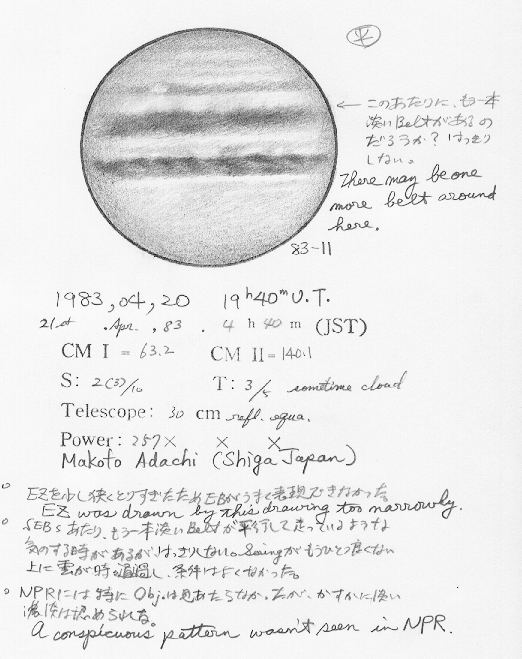 平
← このあたりに、もう一本
淡いBeltがあるの
だろうか？はっきり
しない。
There may be one
more belt around
here.
83-11
1983,04,20 19h40m U.T.
21st .Apr. ,83 . 4 h 40 m (JST)
CM I = 63.2 CM II = 140.1
S: 2(3)/10 T: 3/5 sometime cloud
Telescope: 30 cm refl. equa.
Power: 257× × ×
Makoto Adachi (Shiga Japan)
。 EZを少し狭くとりすぎたためEBがうすく表現できなかった
EZ was drawn by this drawing too narrowly.
。 SEBsあたり、もう一本淡いBeltが平行して走っているような
気のする時があるが、はっきりしない。Seeingがもうひとつ良くない
上に雲が時々通過し、条件はよくなかった。
。 NPRには特にObj.は見あたらなかったが、かすかに淡い
濃淡は認められる。
A conspicuous pattern wasn't seen in NPR.